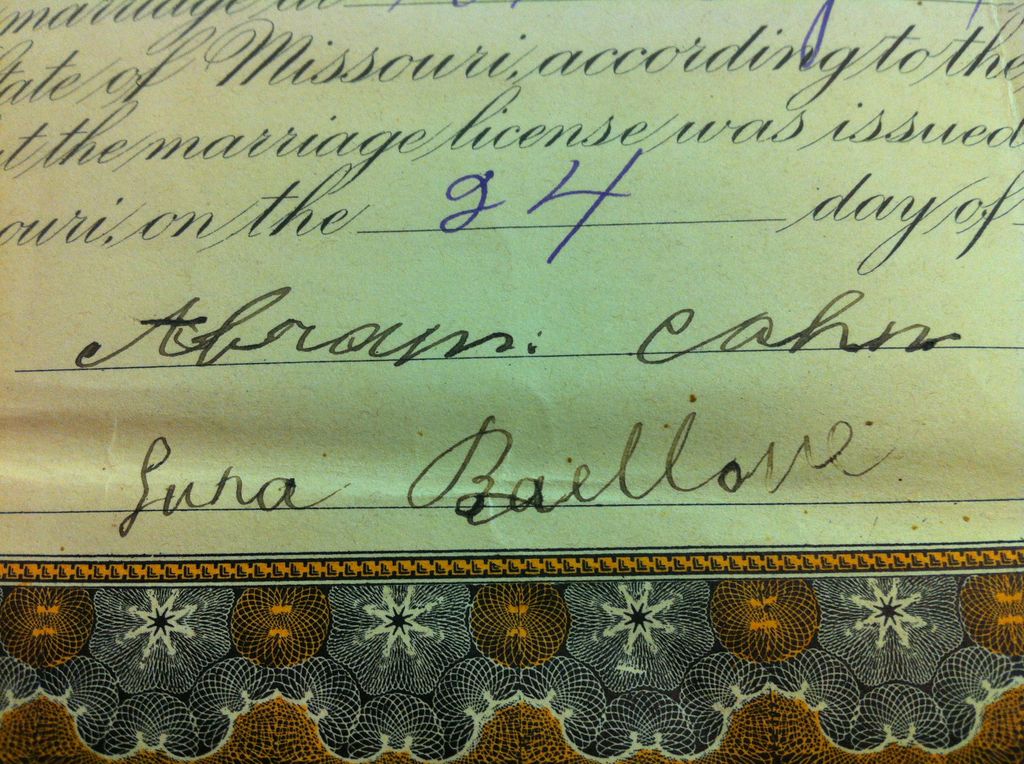 marriage at
tate of Missouri, according to the
t the marriage license was issued
ouri, on the 24 day of
Abram. Cohn